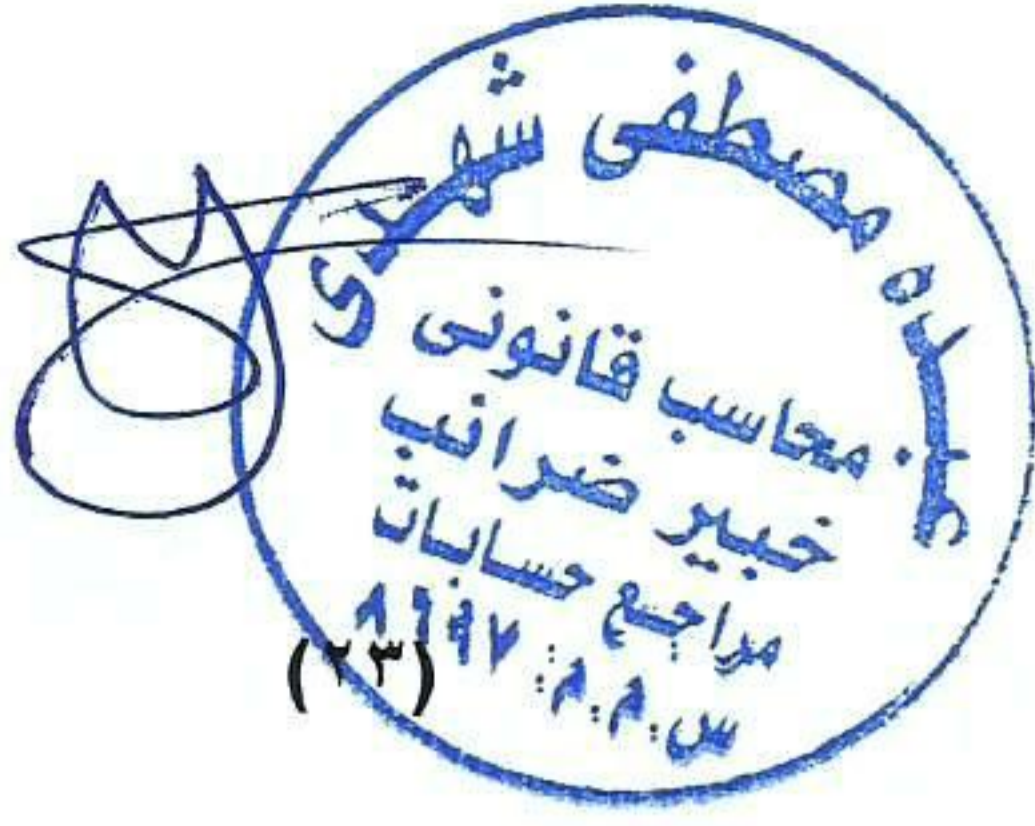 عبده مصطفى شهدى
محاسب قانونى
خبير ضرائب
مراجع حسابات
س.م.م: ٨٦٩٧
(٢٣)